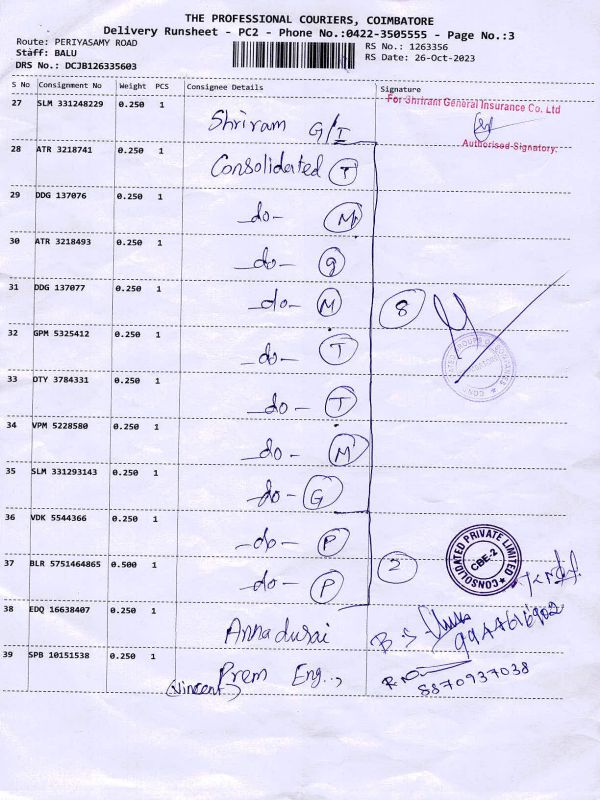 THE PROFESSIONAL COURIERS, COIMBATORE
Delivery Runsheet - PC2 - Phone No.:0422-3505555 - Page No.:3
Route: PERIYASAMY ROAD
RS No.: 1263356
Staff: BALU
RS Date: 26-Oct-2023
DRS No.: DCJB126335603
S No Consignment No Weight PCS Consignee Details Signature
For Shriram General Insurance Co. Ltd
27 SLM 331248229 0.250 1 Shriram G/I
Authorised Signatory.
28 ATR 3218741 0.250 1 Consolidated T
29 DDG 137076 0.250 1 -do- M
30 ATR 3218493 0.250 1 -do- g
31 DDG 137077 0.250 1 -do- M 8
32 GPM 5325412 0.250 1 -do- T
33 DTY 3784331 0.250 1 -do- T
34 VPM 5228580 0.250 1 -do- M
35 SLM 331293143 0.250 1 -do- G
36 VDK 5544366 0.250 1 -do- P
CONSOLIDATED PRIVATE LIMITED
CBE-2
37 BLR 5751464865 0.500 1 -do- P 2
38 EDQ 16638407 0.250 1 Annadurai B.S
9944616902
39 SPB 10151538 0.250 1 Prem Eng..,
(Vincent)
8870937038